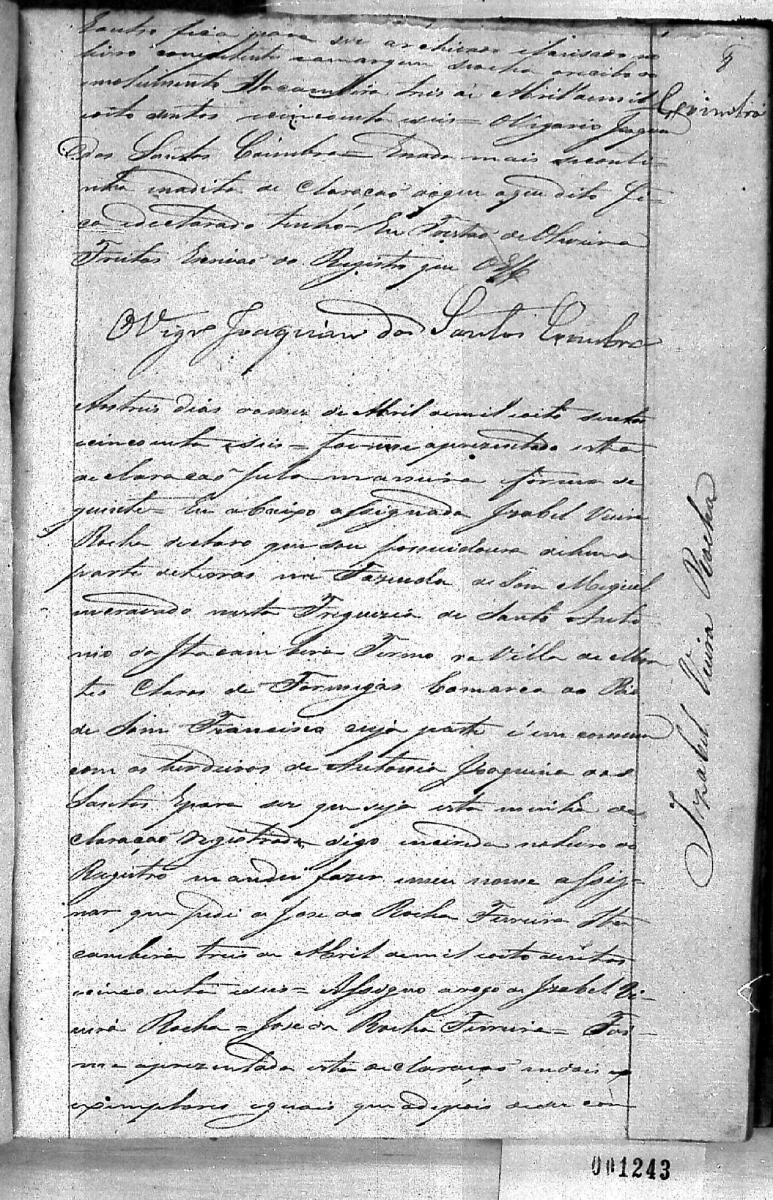 8
Coimbra
outro fica para ser archivado e lansado no
livro competente e a margem o recibo do
emolumento Itacambira tres de Abril de mil
oito centos e cincoenta e seis = O Vigario Joaquim
dos Santos Coimbra = E nada mais se conti-
nha na dita declaracaõ do que aqui dito fi-
ca e declarado tenho = Eu de Oliveira
Freitas Escrivaõ do Registro que
O Vigro Joaquim dos Santos Coimbra
Aos tres dias do mez de Abril de mil oito centos
e cincoenta e seis = foi me aprezentada esta
declaracaõ pela maneira e forma se
guinte = Eu abaixo assignada Izabel Vieira
Rocha declaro que sou possuidoura de huma
parte de terras na Fazenda de Sam Miguel
incravado nesta Freguezia de Santo Anto
nio da Itacambira Termo da Villa de Mon
tes Claros de Formigas Comarca do Rio
de Sam Francisco cuja parte é em comum
com os herdeiros de Antonia Joaquina dos
Santos E para ser que seja esta minha de
claraçaõ registrada digo incirida no livro do
Registro mandei fazer em meu nome assig-
nar que pedi a Jose da Rocha Ferreira Ita
cambira tres de Abril de mil oito centos
e cincoenta e seis = Assigno a rogo de Izabel Vi-
eira Rocha = Jose da Rocha Ferreira = Foi-
me aprezentada esta declaracaõ em dois ex
exemplares eguais que depois de os con
Izabel Vieira Rocha
001243